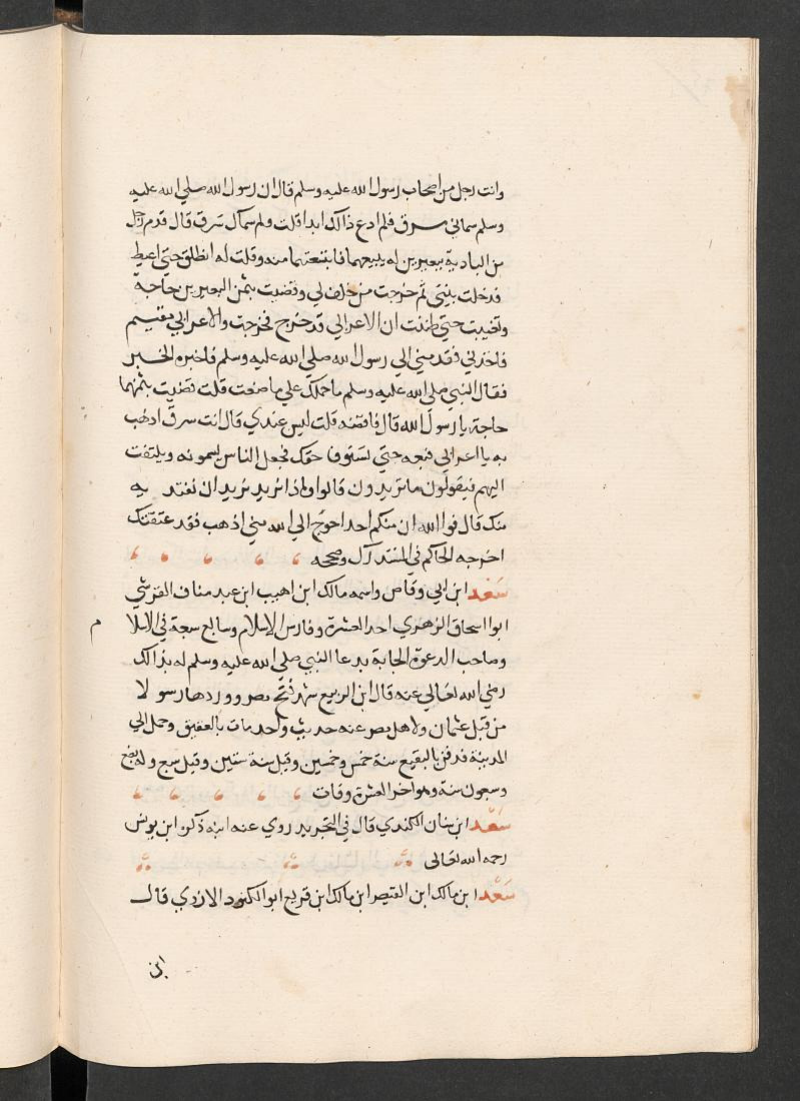 وانت رجل من اصحاب رسول الله عليه وسلم قال ان رسول الله صلي الله عليه
وسلم سماني سرق فلم ادع ذالك ابدا قلت ولم سمآك سَرق قال قدم رجل
من البادية ببعيرين له يبيعهما فابتعتهما منه وقلت له انطلق حتي اعطيك
فدخلت بيتي ثم خرجت من خلف لي وقضيت بثمن البعيرين حاجة
وتغيبت حتي ظننت ان الاعرابي قد خرج فخرجت والاعرابي مقيم
فاخذني فقدمني الي رسول الله صلي الله عليه وسلم فاخبره الخبر
فقال النبي صلي الله عليه وسلم ما حملك علي ما صنعت قلت قضيت بثمنهما
حاجة يا رسول الله قال فاقضه قلت ليس عندي قال انت سرق اذهب
به يا اعرابي فبعه حتي تستوف حقك فجعل الناس يسمونه ويلتفت
اليهم فيقولون ما تريدون قالوا وماذا تريد نريد ان نفتديه
منك قال فوا الله ان منكم احد احوج الي الله مني اذهب فقد عتقتك
اخرجه الحاكم في المستدرك وصححه
سَعْد ابن ابي وقاص واسمه مالك ابن اهيب ابن عبد مناف القرشي
ابوا اسحاق الزهري احد العشرة وفارس الاسلام وسابع سبعة في الاسلا م
وصاحب الدعوة المجابة بدعا النبي صلي الله عليه وسلم له بذالك
رضي الله تعالي عنه قال ابن الربيع شهد فتح مصر ووردها رسولا
من قبل عثمان ولاهل مصر عنه حديث واحد مات بالعقيق وحمل الي
المدينة فدفن بالبقيع سنة خمس وخمسين وقيل سنة ستين وقيل سبع وله بضع
وسبعون سنة وهو اخر العشرة وفات
سَعْد ابن سنان الكندي قال في التجريد روي عنه ابنه ذكره ابن يونس
رحمه الله تعالى
سَعْد ابن مالك ابن القيصر ابن مالك ابن قريع ابو الكنود الازدي قال
ابن